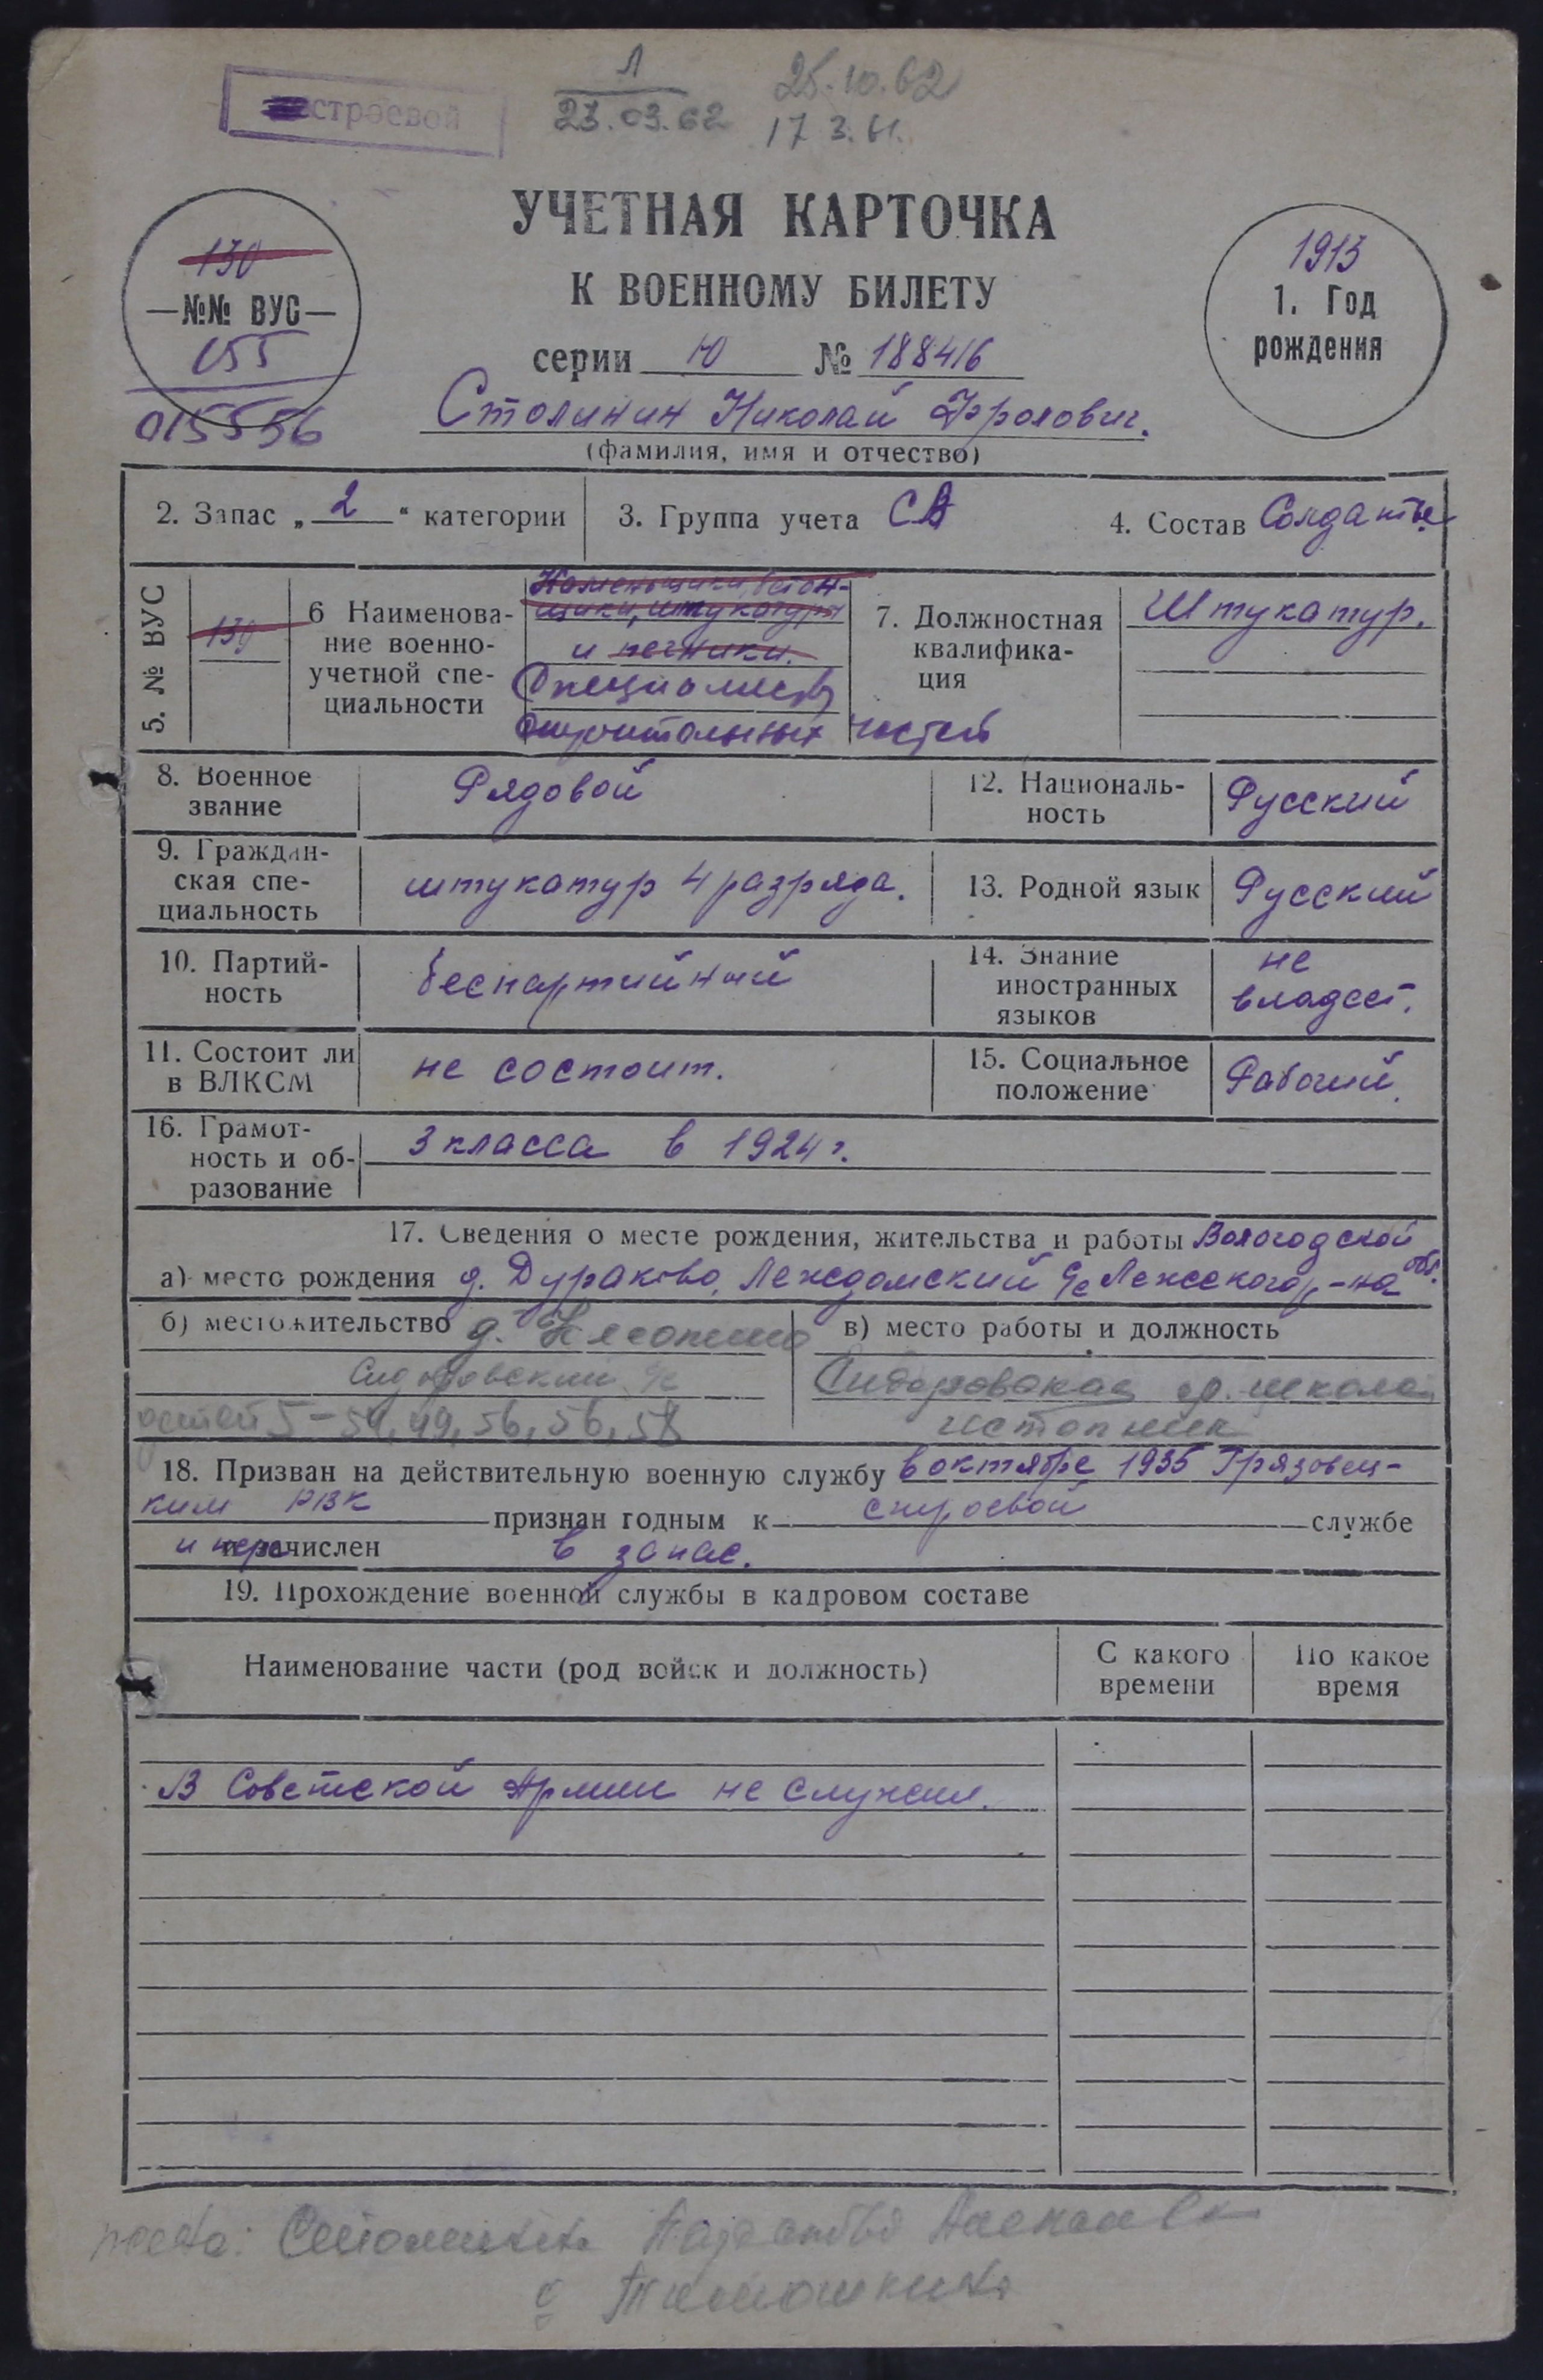 строевой
Л
23.03.62
25.10.62
17 3.61.
УЧЕТНАЯ КАРТОЧКА
К ВОЕННОМУ БИЛЕТУ
серии Ю № 188416
130
—№№ ВУС—
155
015556
1913
1. Год
рождения
Столинин Николай Фролович.
(фамилия, имя и отчество)
2. Запас „2“ категории
3. Группа учета СА
4. Состав Солдаты
5. № ВУС
130
6 Наименова-
ние военно-
учетной спе-
циальности
Каменьщики, бетон-
щики, штукатуры
и печники.
Специалисты
строительных частей
7. Должностная
квалифика-
ция
Штукатур.
8. Военное
звание
Рядовой
12. Националь-
ность
Русский
9. Граждан-
ская спе-
циальность
штукатур 4 разряда.
13. Родной язык
Русский
10. Партий-
ность
беспартийный
14. Знание
иностранных
языков
не
владеет.
11. Состоит ли
в ВЛКСМ
не состоит.
15. Социальное
положение
Рабочий.
16. Грамот-
ность и об-
разование
3 класса в 1924 г.
17. Сведения о месте рождения, жительства и работы Вологодской обл.
а) место рождения д. Дураково, Леждомский с/с Лежского р-на
б) местожительство д.
Сидоровский с/с
детей 5 – 54, 49, 56, 56, 58
в) место работы и должность
Сидоровская ср. школа
истопник
18. Призван на действительную военную службу в октябре 1935 Грязовец-
ким РВК признан годным к строевой службе
и зачислен в запас.
19. Прохождение военной службы в кадровом составе
Наименование части (род войск и должность)
С какого
времени
По какое
время
В Советской Армии не служил.